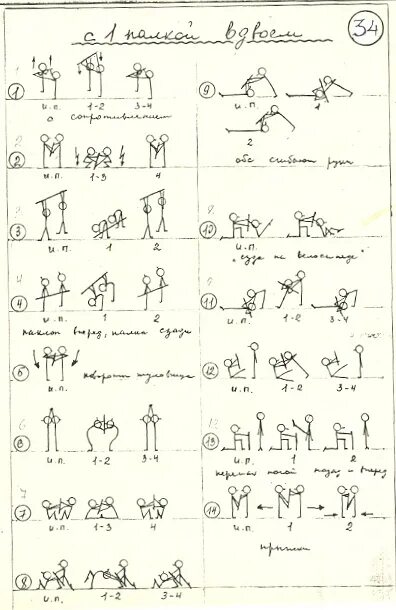 с 1 палкой вдвоем
34
1
и.п. 1-2 3-4
с сопротивлением
2
и.п. 1-3 4
3
и.п. 1 2
4
и.п. 1 2
наклон вперед, палка сзади
5
и.п. повороты туловища
6
и.п. 1-2 3-4
7
и.п. 1-3 4
8
и.п. 1-2 3-4
9
и.п. 1
2
оба сгибают руки
10
и.п.
"езда на велосипеде"
11
и.п. 1-2 3-4
12
и.п. 1-2 3-4
13
и.п. 1 2
перемах ногой назад и вперед
14
и.п. 1 2
прыжки